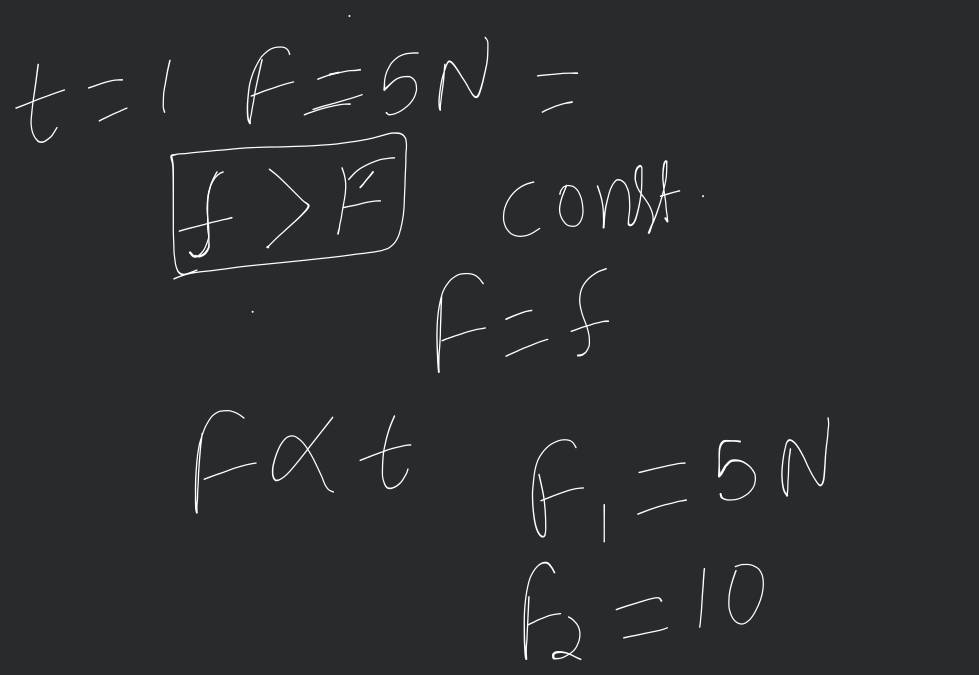 t = 1 F = 5N =
f > F
const.
F = f
F ∝ t
F₁ = 5N
F₂ = 10